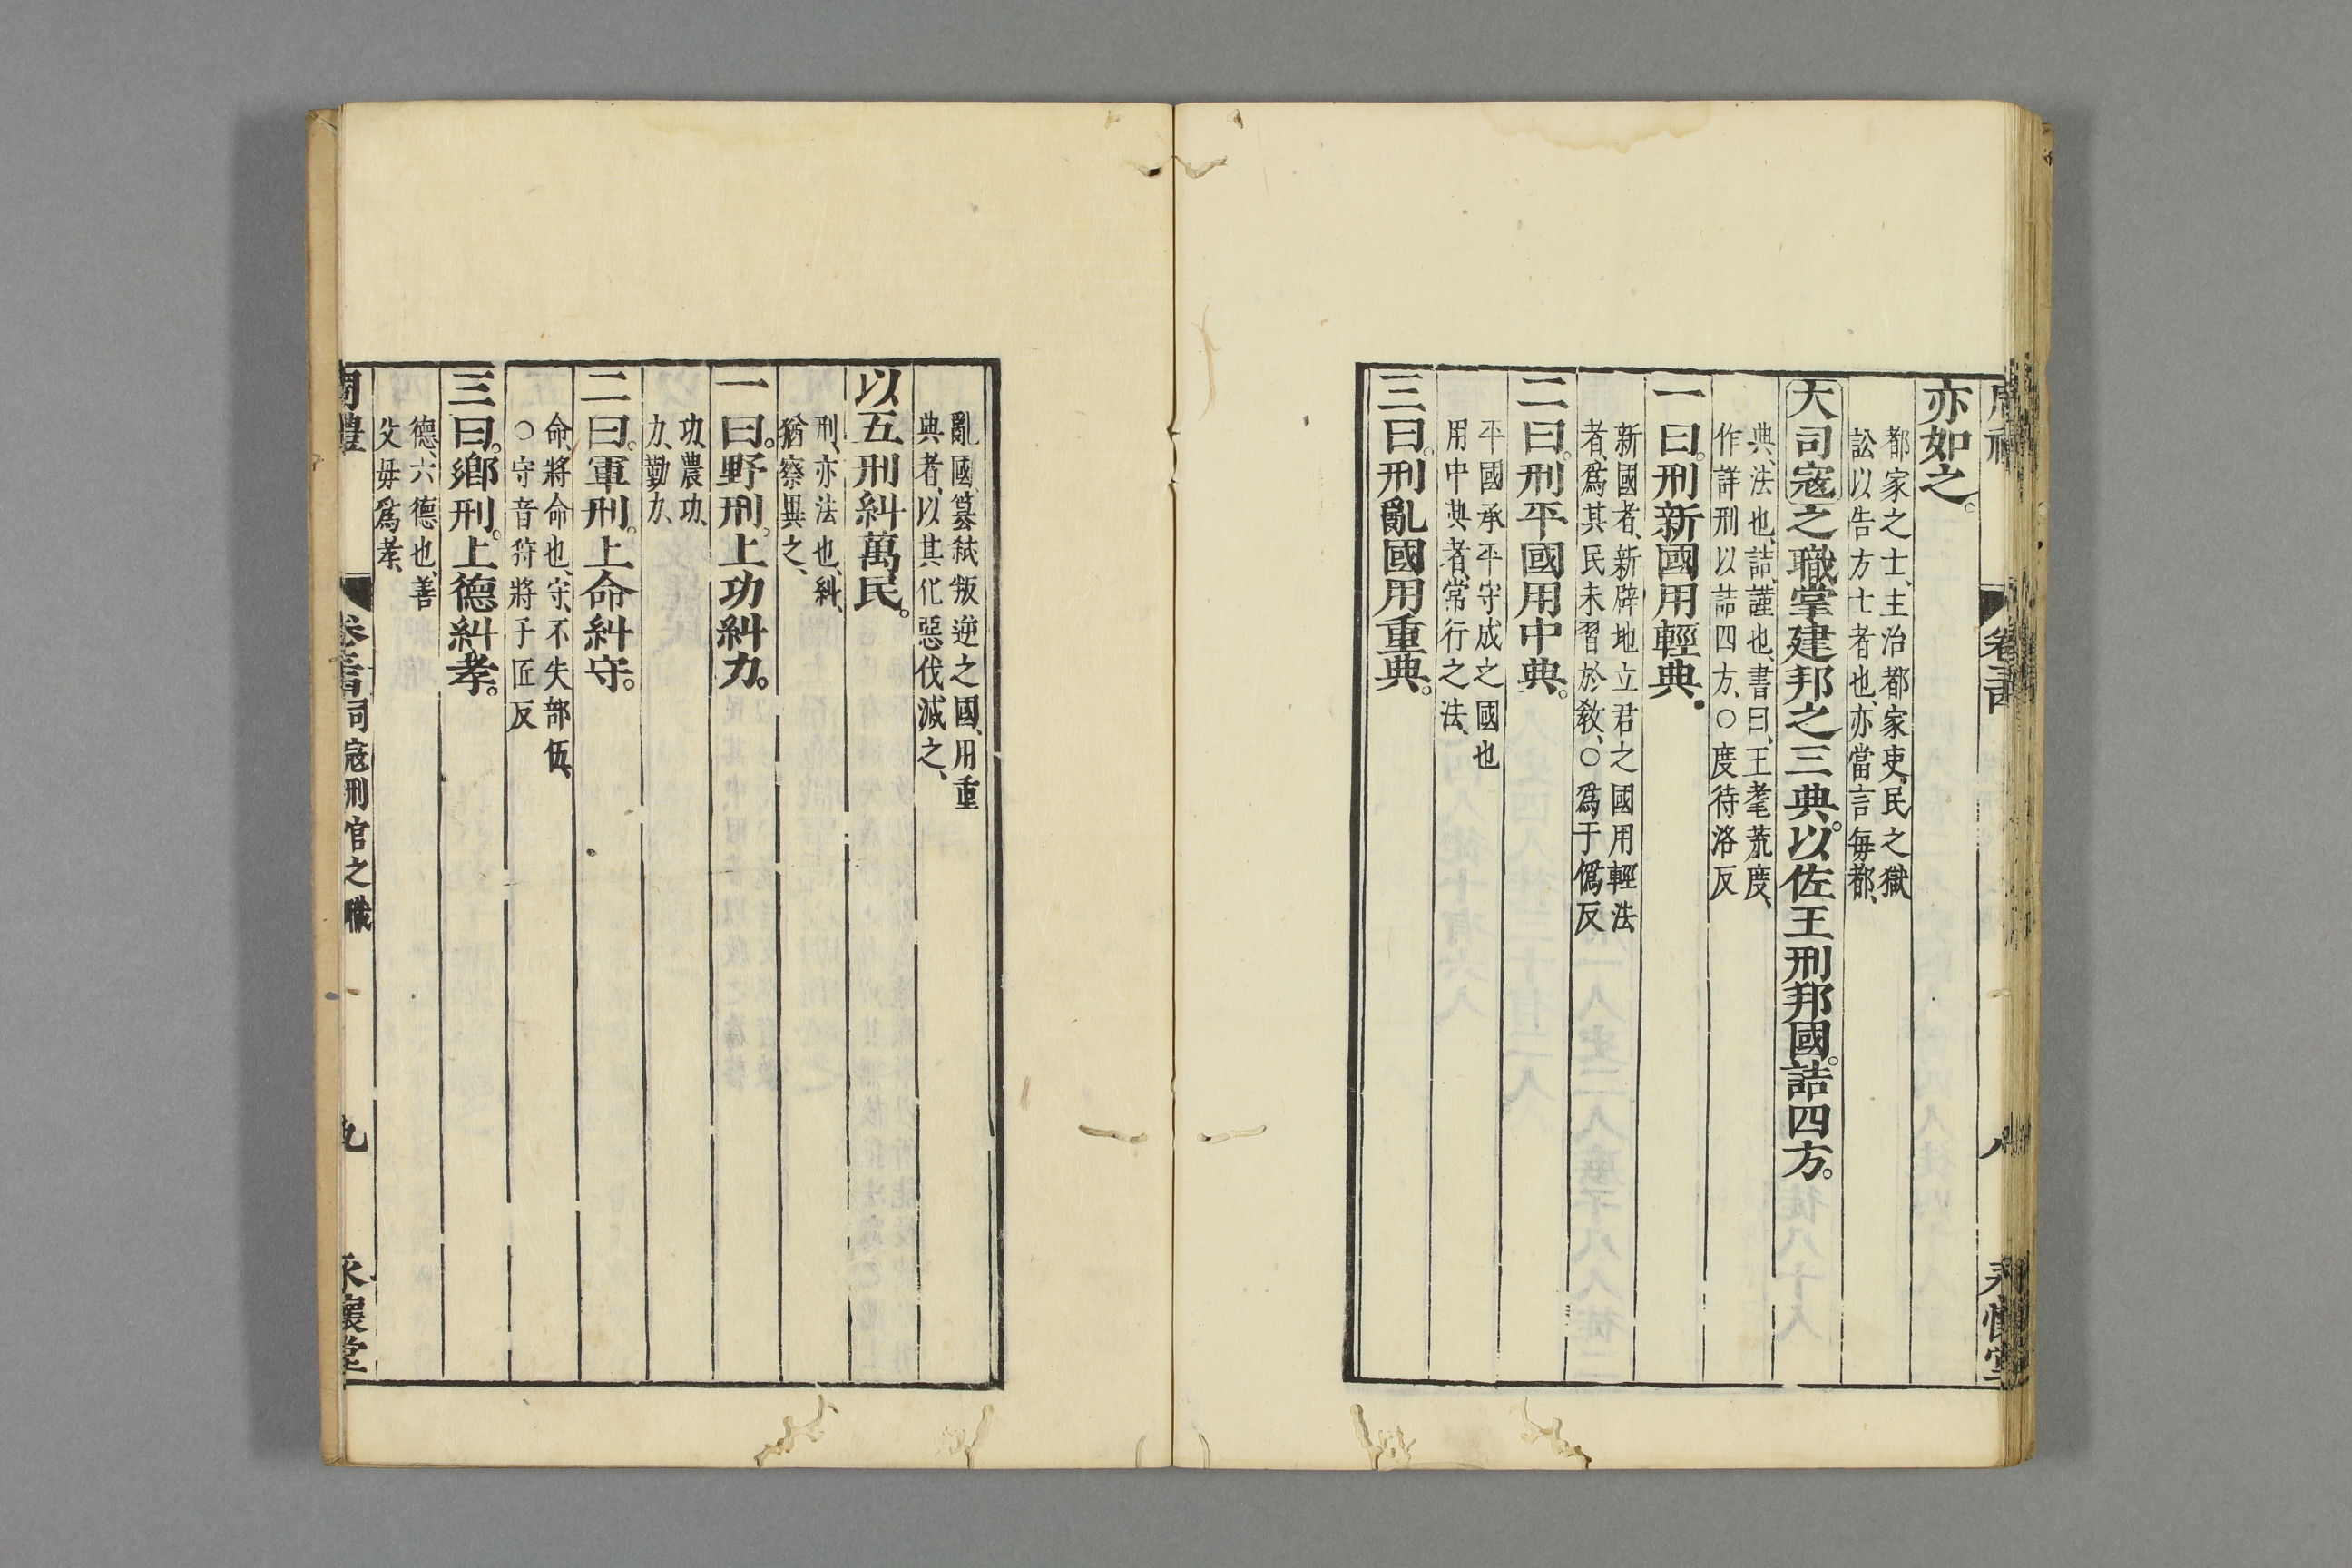 亦如之。
都家之士、主治都家吏、民之獄
訟以告方士者也、亦當言每都、
大司寇之職掌建邦之三典。以佐王刑邦國。詰四方。
典、法也、詰、謹也、書曰、王耄荒、度
作詳刑以詰四方、○度待洛反
一曰。刑新國用輕典。
新國者、新辟地立君之國用輕法
者、爲其民未習於敎、○爲于僞反
二曰。刑平國用中典。
平國承平守成之國也
用中典者、常行之法、
三曰。刑亂國用重典。
亂國、簒弑叛逆之國、用重
典者、以其化惡伐滅之、
以五刑糾萬民。
刑、亦法也、糾、
猶察異之、
一曰。野刑。上功糾力。
功、農功、
力、勤力、
二曰。軍刑。上命糾守。
命、將命也、守、不失部伍、
○守音狩將子匠反
三曰。鄉刑。上德糾孝。
德、六德也、善
父毋爲孝、
周禮 司寇刑官之職 九 永懷堂